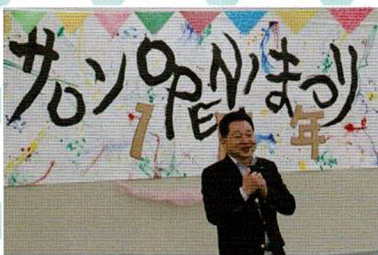 サロンOPENまつり
1 年